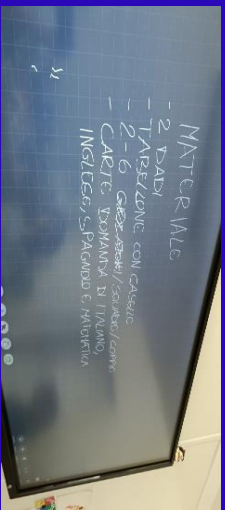 MATERIALE
- 2 DADI
- TABELLONE CON CASELLE
- 2-6 /SQUADRE/
- CARTE DOMANDA DI ITALIANO,
INGLESE, SPAGNOLO E MATEMATICA